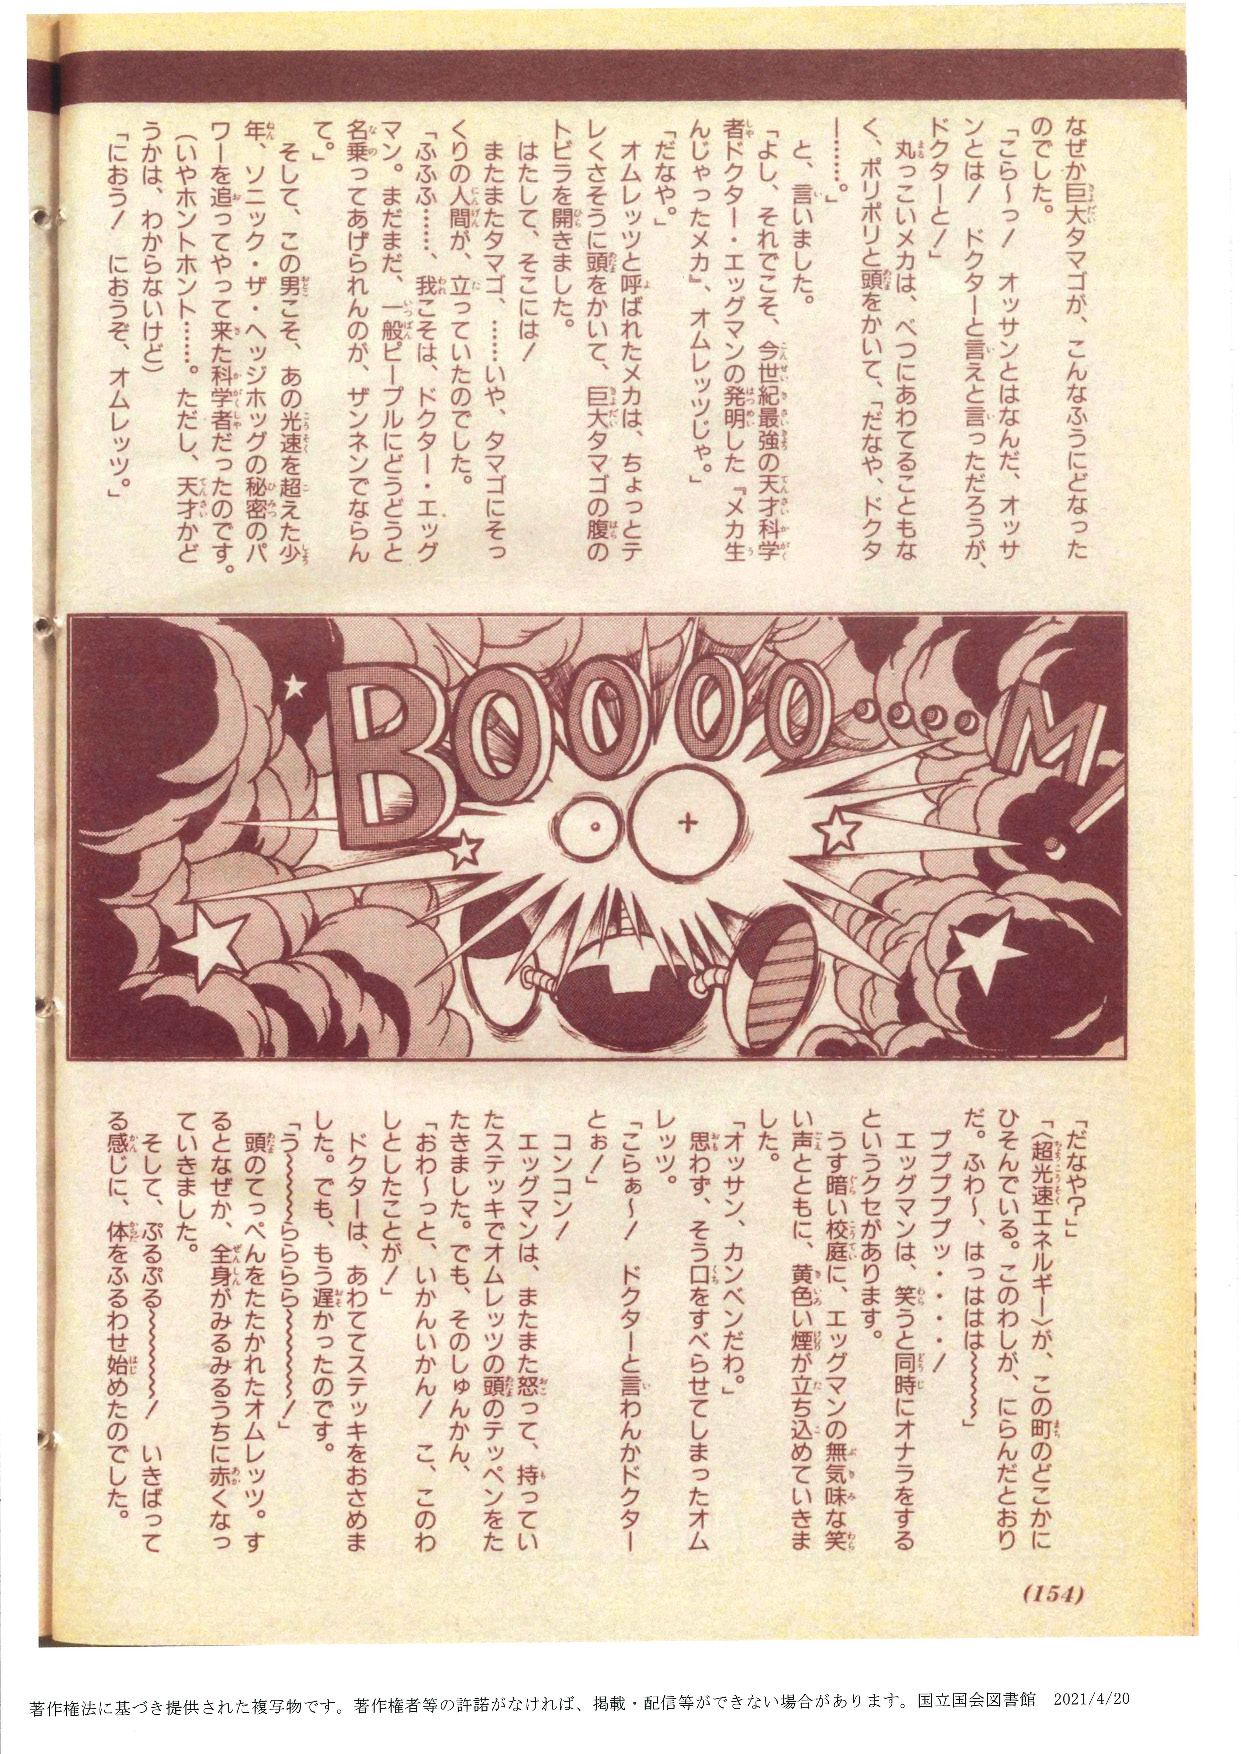 なぜか巨大タマゴが、こんなふうにどなった
のでした。
「こら～っ！　オッサンとはなんだ、オッサ
ンとは！　ドクターと言えと言っただろうが、
ドクターと！」
　丸っこいメカは、べつにあわてることもな
く、ポリポリと頭をかいて、「だなや、ドクタ
ー……。」
　と、言いました。
「よし、それでこそ、今世紀最強の天才科学
者ドクター・エッグマンの発明した『メカ生
んじゃったメカ』、オムレッツじゃ。」
「だなや。」
　オムレッツと呼ばれたメカは、ちょっとテ
レくさそうに頭をかいて、巨大タマゴの腹の
トビラを開きました。
　はたして、そこには！
　またまたタマゴ、……いや、タマゴにそっ
くりの人間が、立っていたのでした。
「ふふふ……、我こそは、ドクター・エッグ
マン。まだまだ、一般ピープルにどうどうと
名乗ってあげられんのが、ザンネンでならん
て。」
　そして、この男こそ、あの光速を超えた少
年、ソニック・ザ・ヘッジホッグの秘密のパ
ワーを追ってやって来た科学者だったのです。
（いやホントホント……。ただし、天才かど
うかは、わからないけど）
「におう！　におうぞ、オムレッツ。」
BOOOOO····M!
「だなや？」
「〈超光速エネルギー〉が、この町のどこかに
ひそんでいる。このわしが、にらんだとおり
だ。ふわ～、はっははは～～～～」
　プププププッ・・・・！
　エッグマンは、笑うと同時にオナラをする
というクセがあります。
　うす暗い校庭に、エッグマンの無気味な笑
い声とともに、黄色い煙が立ち込めていきま
した。
「オッサン、カンベンだわ。」
　思わず、そう口をすべらせてしまったオム
レッツ。
「こらぁ～！　ドクターと言わんかドクター
とぉ！」
　コンコン！
　エッグマンは、またまた怒って、持ってい
たステッキでオムレッツの頭のテッペンをた
たきました。でも、そのしゅんかん、
「おわ～っと、いかんいかん！　こ、このわ
しとしたことが！」
　ドクターは、あわててステッキをおさめま
した。でも、もう遅かったのです。
「う～～～～らららら～～～～～！」
　頭のてっぺんをたたかれたオムレッツ。す
るとなぜか、全身がみるみるうちに赤くなっ
ていきました。
　そして、ぷるぷる～～～～～！　いきばって
る感じに、体をふるわせ始めたのでした。
(154)
著作権法に基づき提供された複写物です。著作権者等の許諾がなければ、掲載・配信等ができない場合があります。国立国会図書館　2021/4/20